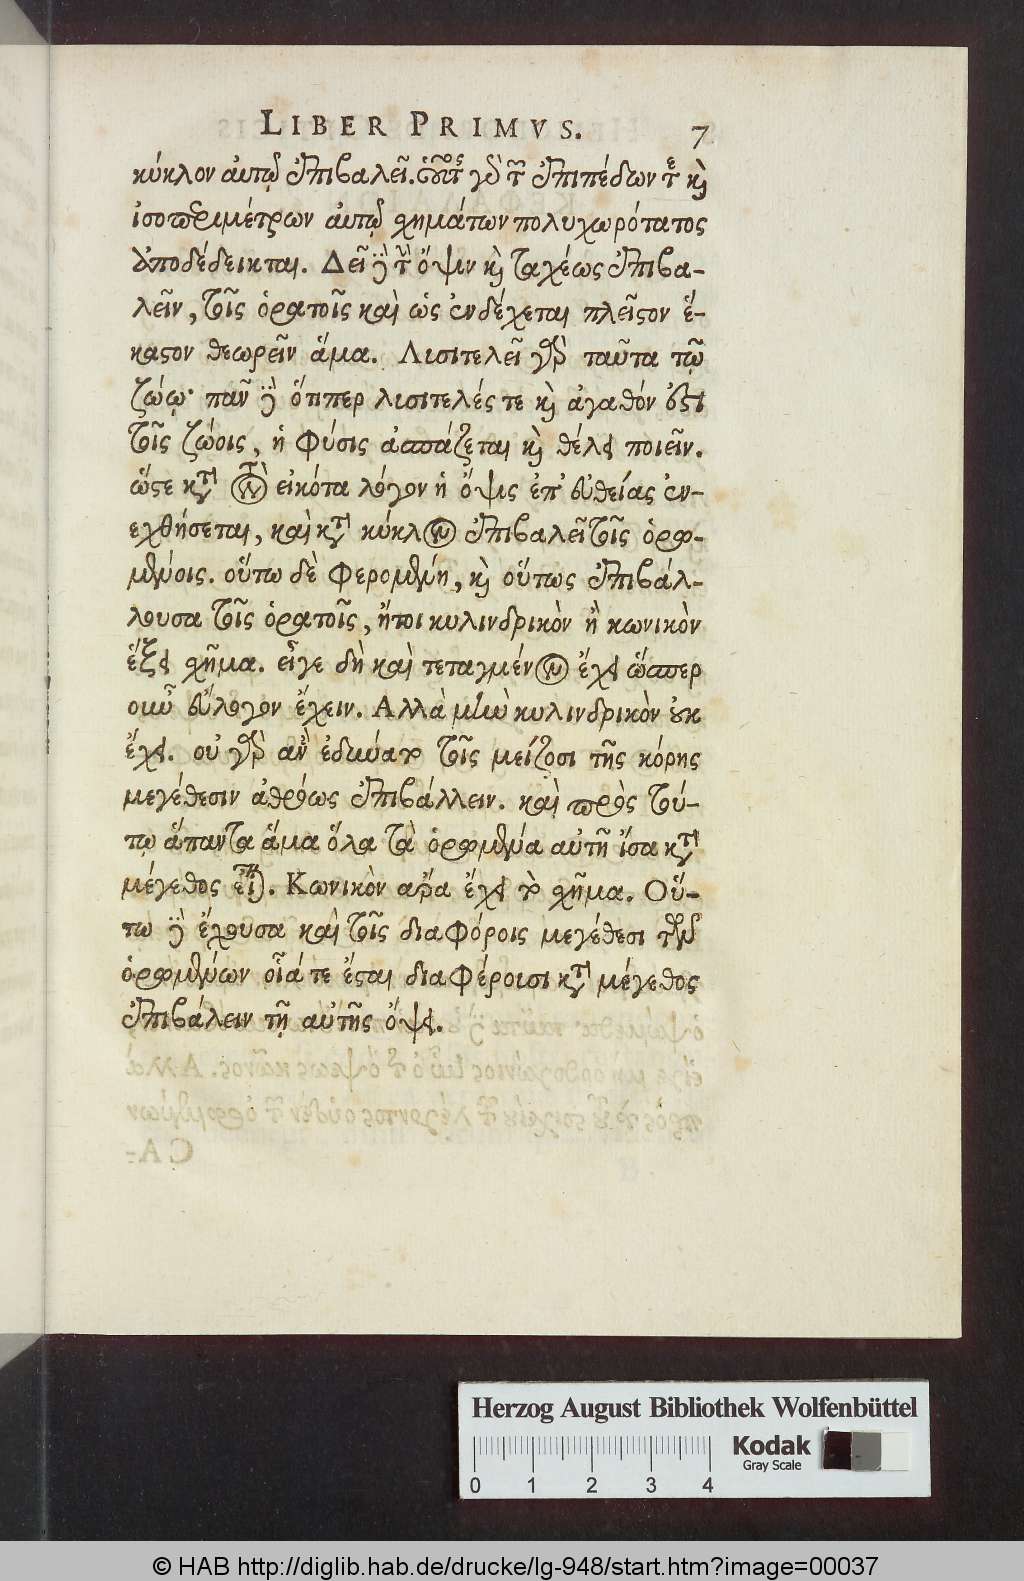 LIBER PRIMVS. 7
κύκλον αὐτῷ ἐπιβαλεῖ. οὗτος γὰρ τῶν ἐπιπέδων τε καὶ
ἰσοπεριμέτρων αὐτῷ σχημάτων πολυχωρότατος
ἀποδέδεικται. Δεῖ δὲ τὴν ὄψιν καὶ ταχέως ἐπιβα-
λεῖν, τοῖς ὁρατοῖς καὶ ὡς ἐνδέχεται πλεῖστον ἕ-
καστον θεωρεῖν ἅμα. Λισιτελεῖ γὰρ ταῦτα τῷ
ζώῳ· παν δὲ ὅτιπερ λισιτελές τε καὶ ἀγαθόν ἐστι
τοῖς ζώοις, ἡ φύσις ἀσπάζεται καὶ θέλει ποιεῖν.
ὥστε κατὰ τὸν εἰκότα λόγον ἡ ὄψις ἐπ' εὐθείας ἐν-
εχθήσεται, καὶ κατὰ κύκλον ἐπιβαλεῖ τοῖς ὁρω-
μένοις. οὕτω δὲ φερομένη, καὶ οὕτως ἐπιβάλ-
λουσα τοῖς ὁρατοῖς, ἤτοι κυλινδρικὸν ἢ κωνικὸν
ἕξει σχῆμα. εἶγε δὴ καὶ τεταγμένον ἔχει ὥσπερ
οὖν εὔλογον ἔχειν. Αλλὰ μὴν κυλινδρικὸν οὐκ
ἔχει. οὐ γὰρ ἂν ἐδύνατο τοῖς μείζοσι τῆς κόρης
μεγέθεσιν ἀθρόως ἐπιβάλλειν. καὶ πρὸς τού-
τῳ ἅπαντα ἅμα ὅλα τὰ ὁρώμενα αὐτῇ ἴσα κατὰ
μέγεθος
Κωνικὸν ἄρα ἔχει τὸ σχῆμα. Οὕ-
τω δὲ ἔχουσα καὶ τοῖς διαφόροις μεγέθεσι τῶν
ὁρωμένων οἷά τε ἔσται διαφέροισι κατὰ μέγεθος
ἐπιβάλειν τῇ αὐτῆς ὄψει.
Herzog August Bibliothek Wolfenbüttel
Kodak
Gray Scale
0 1 2 3 4
© HAB http://diglib.hab.de/drucke/lg-948/start.htm?image=00037